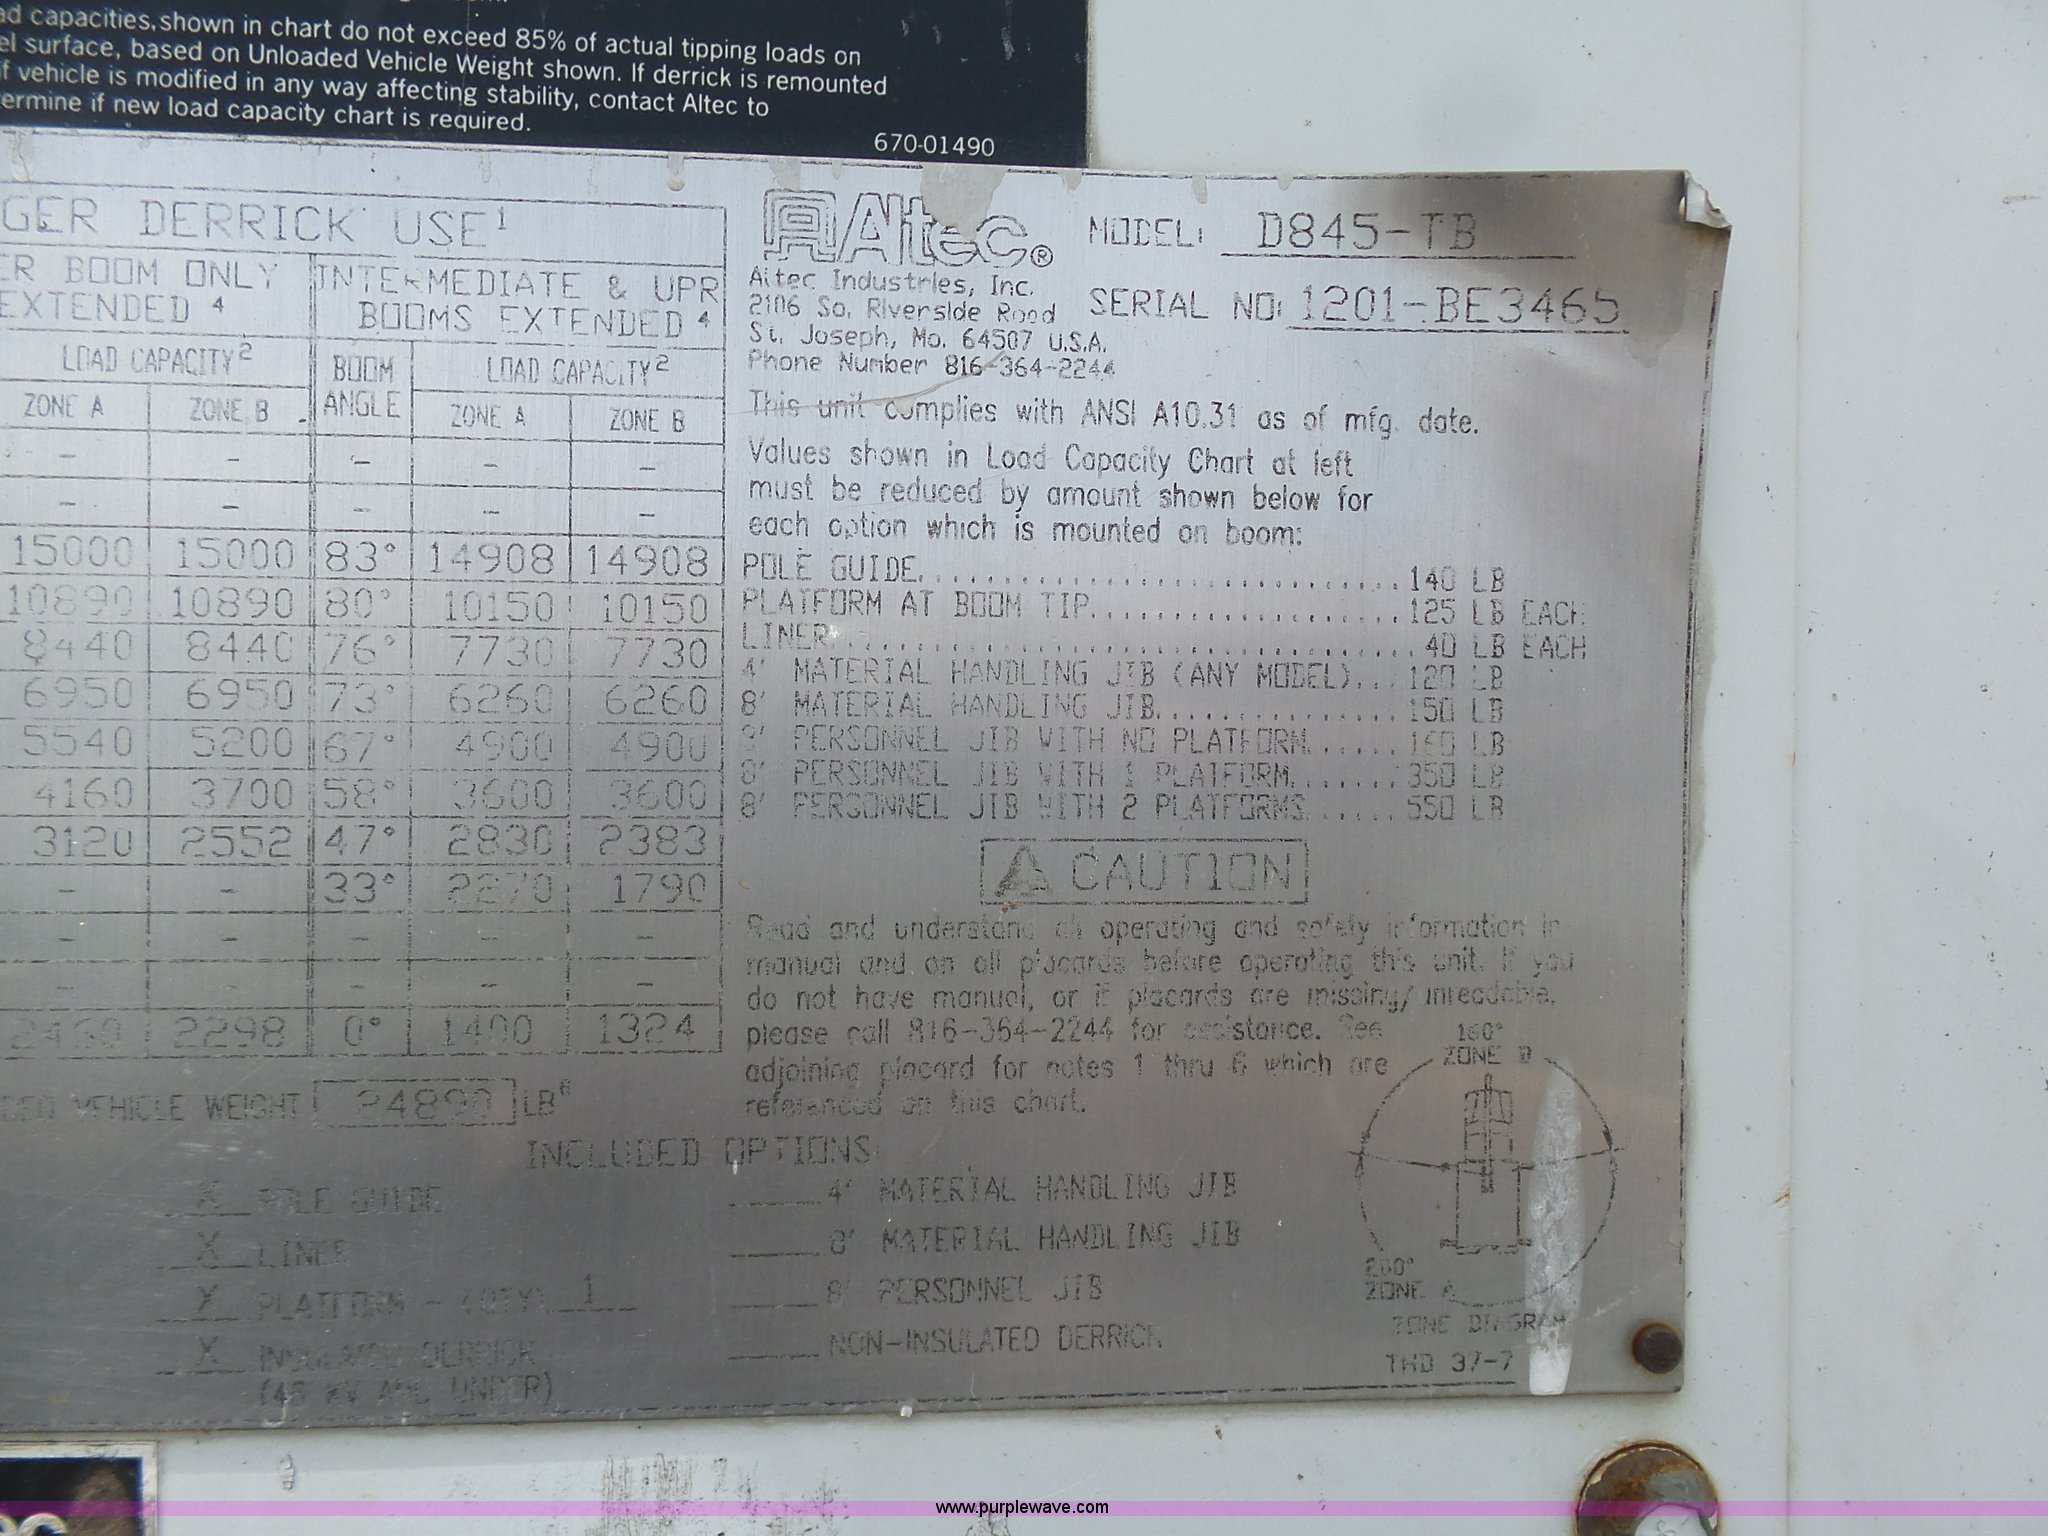 ad capacities, shown in chart do not exceed 85% of actual tipping loads on
el surface, based on Unloaded Vehicle Weight shown. If derrick is remounted
if vehicle is modified in any way affecting stability, contact Altec to
ermine if new load capacity chart is required.
670-01490
GER DERRICK USE1
ER BOOM ONLY
EXTENDED 4
INTERMEDIATE & UPR
BOOMS EXTENDED 4
LOAD CAPACITY2
BOOM ANGLE
LOAD CAPACITY2
ZONE A ZONE B ZONE A ZONE B
- - - - -
- - - - -
15000 15000 83° 14908 14908
10890 10890 80° 10150 10150
8440 8440 76° 7730 7730
6950 6950 73° 6260 6260
5540 5200 67° 4900 4900
4160 3700 58° 3600 3600
3120 2552 47° 2830 2383
- - 33° 2270 1790
- - - - -
- - - - -
2298 0° 1400 1324
DED VEHICLE WEIGHT 24890 LB6
Altec®
Altec Industries, Inc.
2106 So. Riverside Road
St. Joseph, Mo. 64507 U.S.A.
Phone Number 816-364-2244
MODEL: D845-TB
SERIAL NO: 1201-BE3465
This unit complies with ANSI A10.31 as of mfg. date.
Values shown in Load Capacity Chart at left
must be reduced by amount shown below for
each option which is mounted on boom:
POLE GUIDE..............................140 LB
PLATFORM AT BOOM TIP...................125 LB EACH
LINER...................................40 LB EACH
4' MATERIAL HANDLING JIB (ANY MODEL)...120 LB
8' MATERIAL HANDLING JIB...............150 LB
8' PERSONNEL JIB WITH NO PLATFORM......160 LB
8' PERSONNEL JIB WITH 1 PLATFORM.......350 LB
8' PERSONNEL JIB WITH 2 PLATFORMS......550 LB
CAUTION
Read and understand all operating and safety information in
manual and on all placards before operating this unit. If you
do not have manual, or if placards are missing/unreadable,
please call 816-364-2244 for assistance. See
adjoining placard for notes 1 thru 6 which are
referenced on this chart.
INCLUDED OPTIONS
X POLE GUIDE
X LINER
X PLATFORM - (QTY) 1
X INSULATED DERRICK
(46 KV AND UNDER)
4' MATERIAL HANDLING JIB
8' MATERIAL HANDLING JIB
8' PERSONNEL JIB
NON-INSULATED DERRICK
160°
ZONE B
200°
ZONE A
ZONE DIAGRAM
THD 37-7
www.purplewave.com